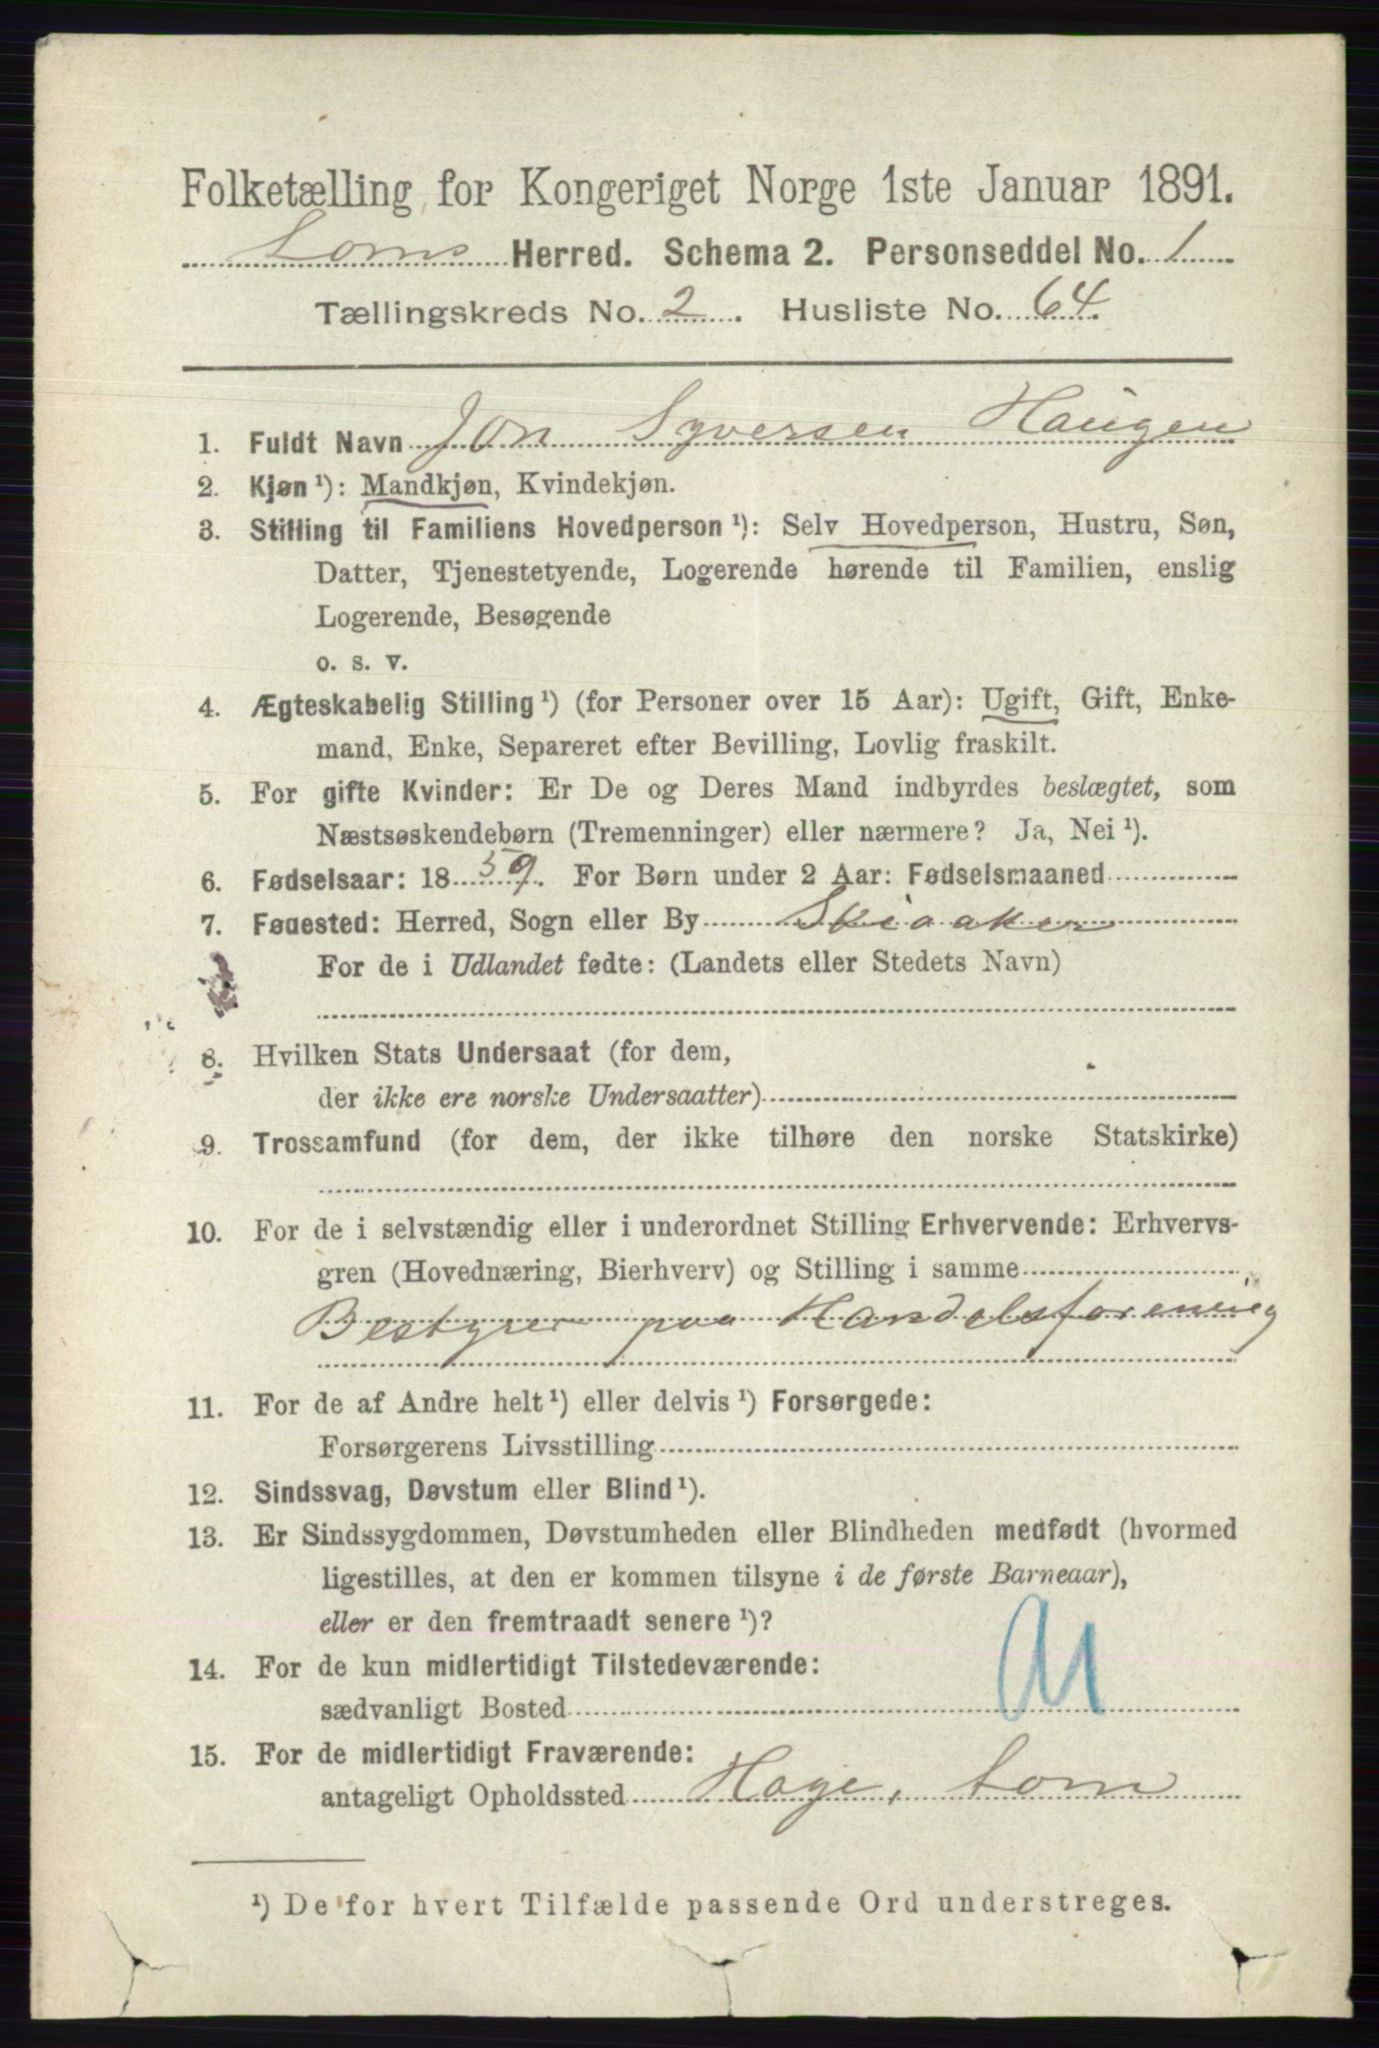 Folketælling for Kongeriget Norge 1ste Januar 1891.
Loms Herred. Schema 2. Personseddel No. 1
Tællingskreds No. 2. Husliste No. 64.
1. Fuldt Navn Jon Syversen Haugen
2. Kjøn ¹): Mandkjøn, Kvindekjøn.
3. Stilling til Familiens Hovedperson ¹): Selv Hovedperson, Hustru, Søn,
Datter, Tjenestetyende, Logerende hørende til Familien, enslig
Logerende, Besøgende
o. s. v.
4. Ægteskabelig Stilling ¹) (for Personer over 15 Aar): Ugift, Gift, Enke-
mand, Enke, Separeret efter Bevilling, Lovlig fraskilt.
5. For gifte Kvinder: Er De og Deres Mand indbyrdes beslægtet, som
Næstsøskendebørn (Tremenninger) eller nærmere? Ja, Nei ¹).
6. Fødselsaar: 1859. For Børn under 2 Aar: Fødselsmaaned
7. Fødested: Herred, Sogn eller By Skiaaker
For de i Udlandet fødte: (Landets eller Stedets Navn)
8. Hvilken Stats Undersaat (for dem,
der ikke ere norske Undersaatter)
9. Trossamfund (for dem, der ikke tilhøre den norske Statskirke)
10. For de i selvstændig eller i underordnet Stilling Erhvervende: Erhvervs-
gren (Hovednæring, Bierhverv) og Stilling i samme
Bestyrer paa Handelsforening
11. For de af Andre helt ¹) eller delvis ¹) Forsørgede:
Forsørgerens Livsstilling
12. Sindssvag, Døvstum eller Blind ¹).
13. Er Sindssygdommen, Døvstumheden eller Blindheden medfødt (hvormed
ligestilles, at den er kommen tilsyne i de første Barneaar),
eller er den fremtraadt senere ¹)?
14. For de kun midlertidigt Tilstedeværende:
sædvanligt Bosted
15. For de midlertidigt Fraværende:
antageligt Opholdssted Hage, Lom
¹) De for hvert Tilfælde passende Ord understreges.